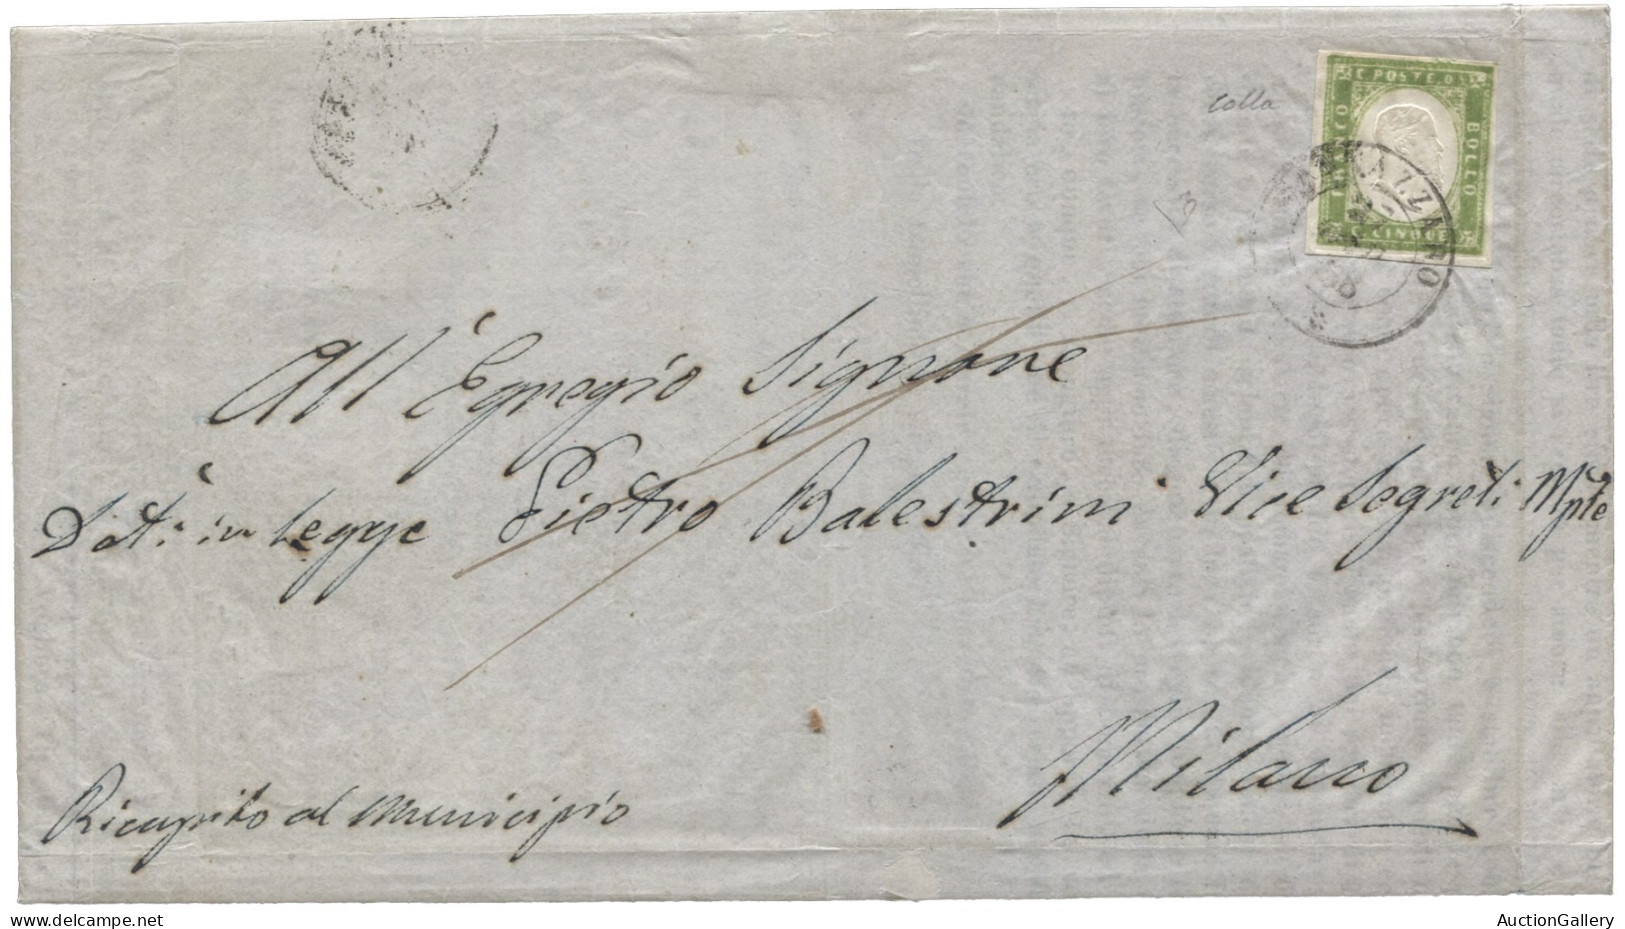 colla
C. POSTE. 
FRANCO
BOLLO
C. CINQUE
60
All' Egregio Signore
Dott. in Legge Pietro Balestrini Vice Segret. Mple
Milano
Ricapito al Municipio
AuctionGallery